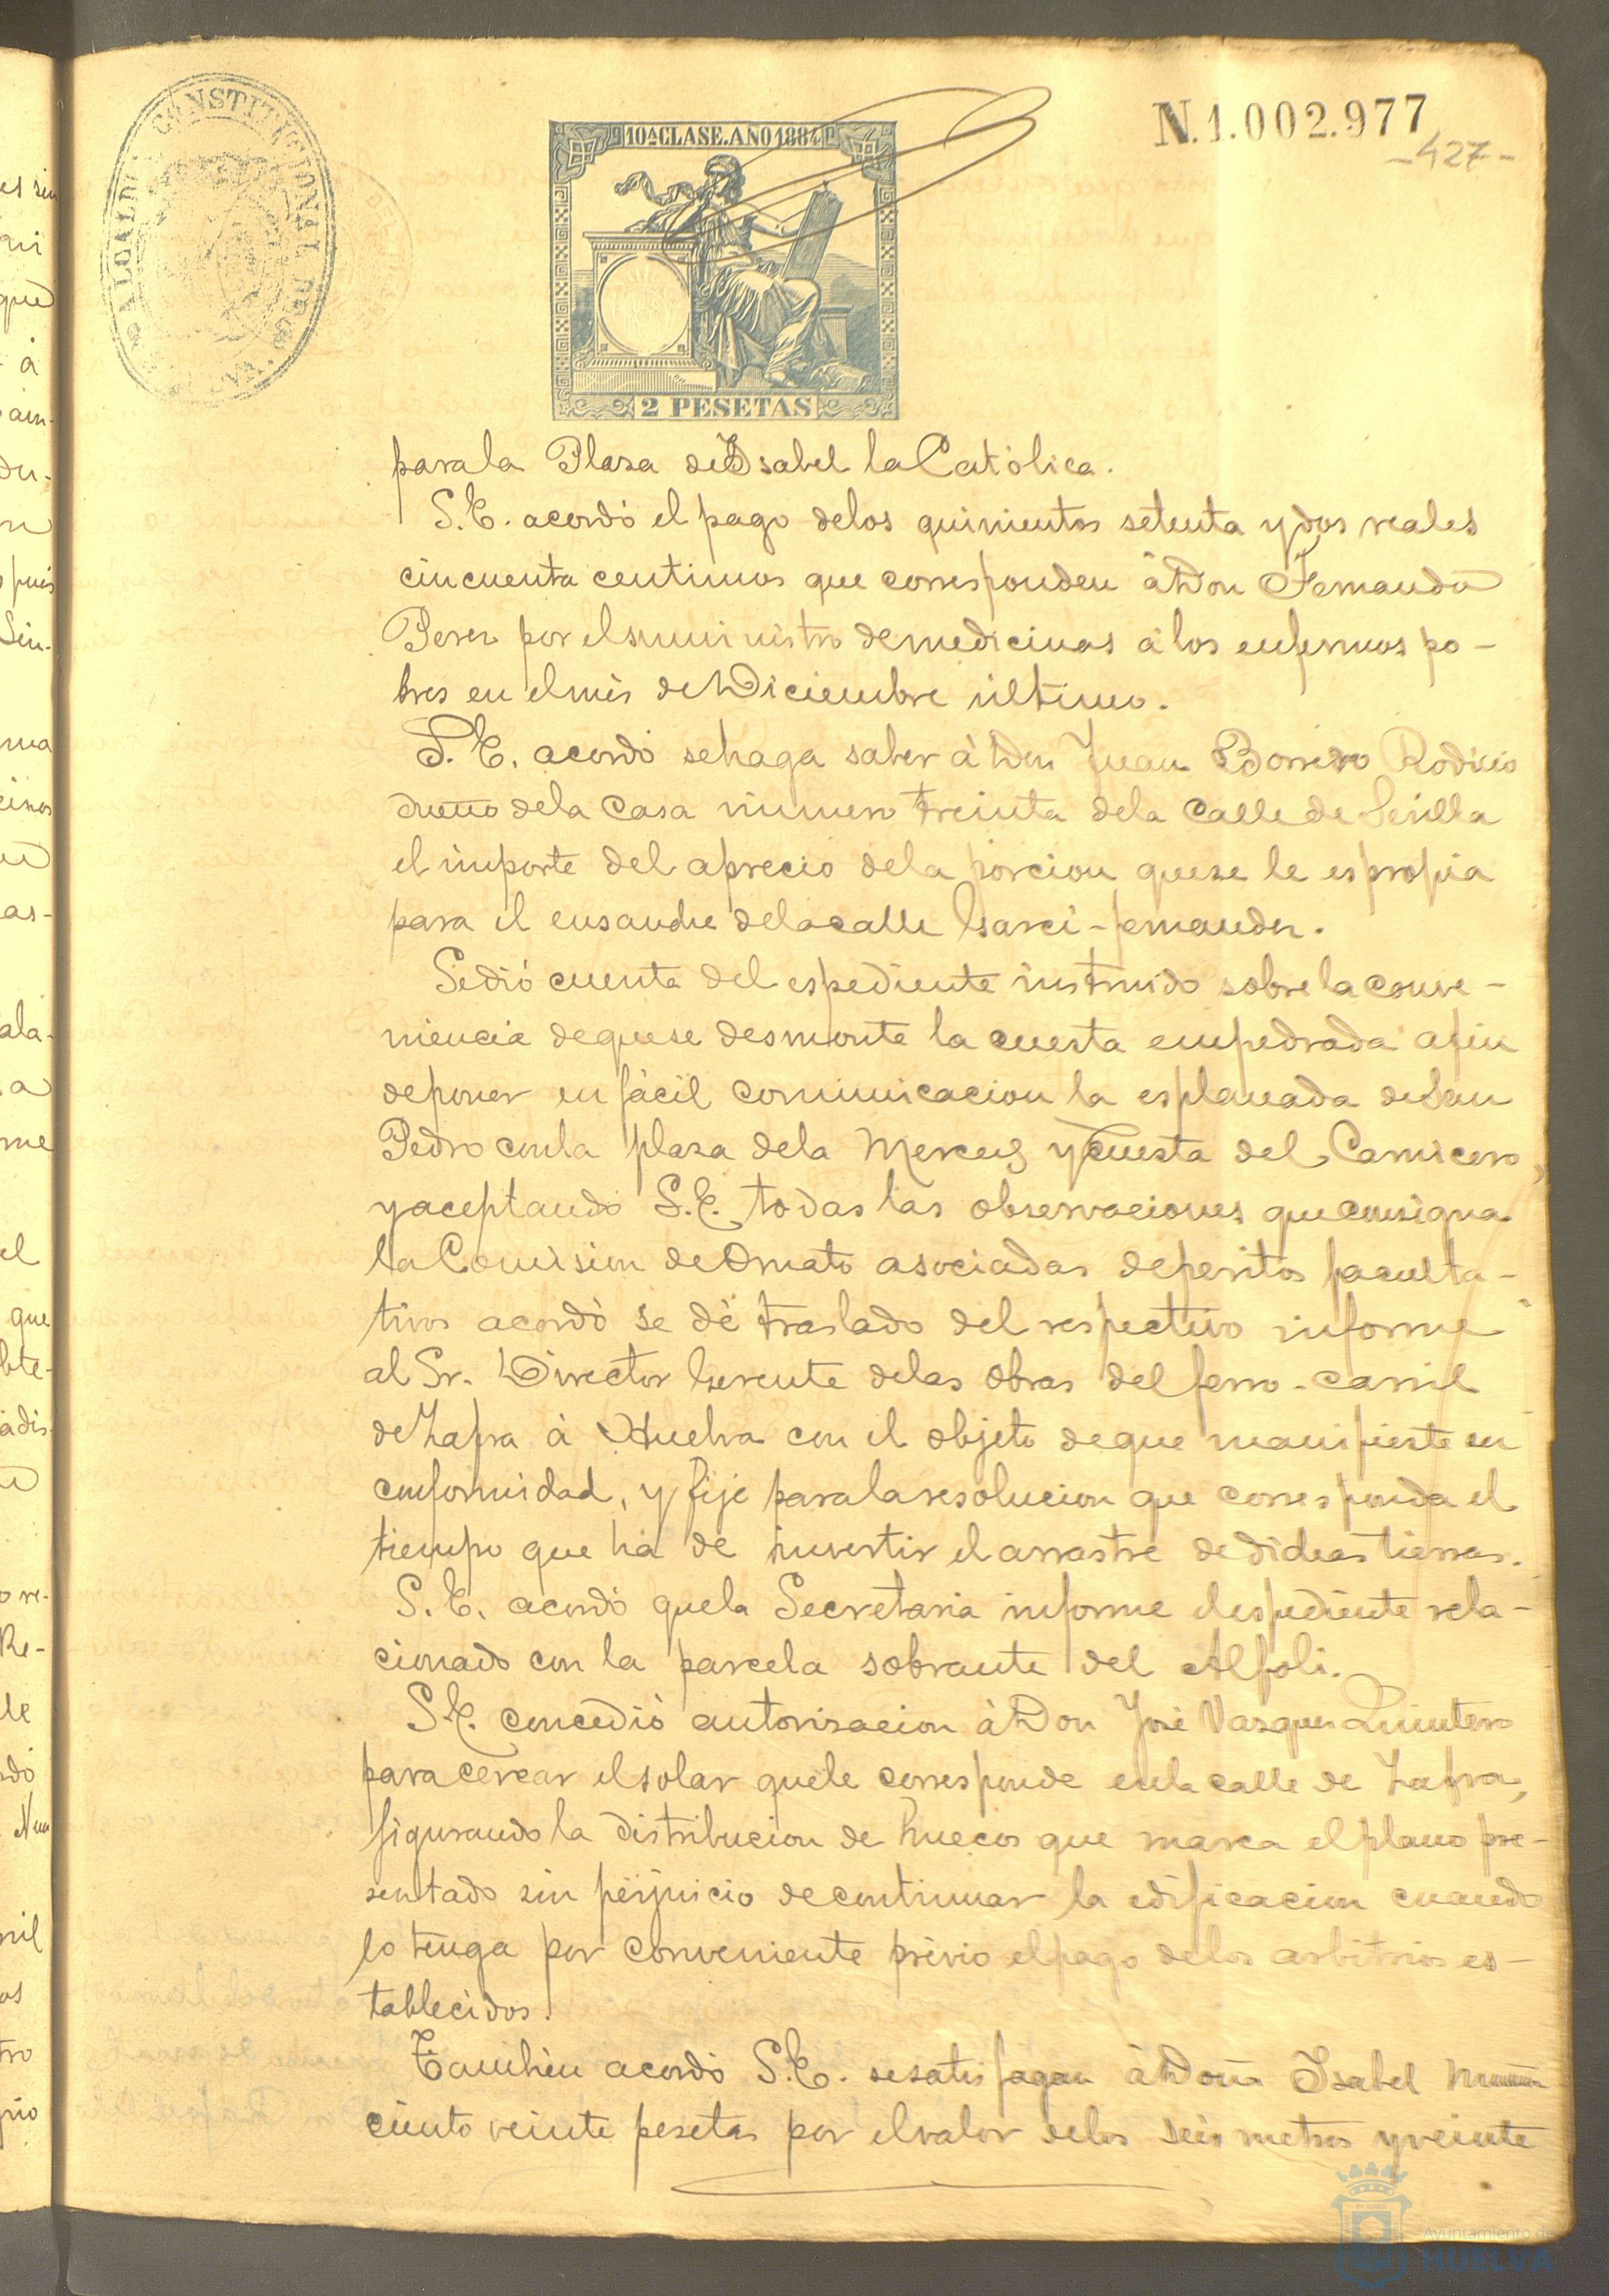 ALCALDIA CONSTITUCIONAL DE HUELVA.
10ª CLASE. AÑO 1884
N.1.002.977
-427-
2 PESETAS
para la Plaza de Isabel la Católica.
S.E. acordó el pago de los quinientos setenta y dos reales
cincuenta centimos que corresponden á Don Fernando
Perez por el suministro de medicinas á los enfermos po-
bres en el mes de Diciembre último.
S.E. acordó se haga saber á Don Juan Borrero Rodicio
dueño de la casa número treinta de la calle de Sevilla
el importe del aprecio de la porcion que se le espropia
para el ensanche de la calle Garci-fernandez.
Se dió cuenta del espediente instruido sobre la conve-
niencia de que se desmonte la cuesta empedrada á fin
de poner en fácil comunicacion la esplanada de San
Pedro con la plaza de la Merced y Cuesta del Carnicero,
y aceptando S.E. todas las observaciones que consigna
la Comision de Ornato asociadas de peritos faculta-
tivos acordó se dé traslado del respectivo informe
al Sr. Director Gerente de las obras del ferro-carril
de Zafra á Huelva con el objeto de que manifieste su
conformidad, y fije para la resolucion que corresponda el
tiempo que ha de invertir el arrastre de dichas tierras.
S.E. acordó que la Secretaria informe el espediente rela-
cionado con la parcela sobrante del Alfoli.
S.E. concedió autorizacion á Don José Vazquez Quintero
para cercar el solar que le corresponde en la calle de Zafra,
figurando la distribucion de huecos que marca el plano pre-
sentado sin perjuicio de continuar la edificacion cuando
lo tenga por conveniente prévio el pago de los arbitrios es-
tablecidos.
Tambien acordó S.E. se satisfagan á Doña Isabel
ciento veinte pesetas por el valor de los seis metros y veinte
Ayuntamiento de
HUELVA